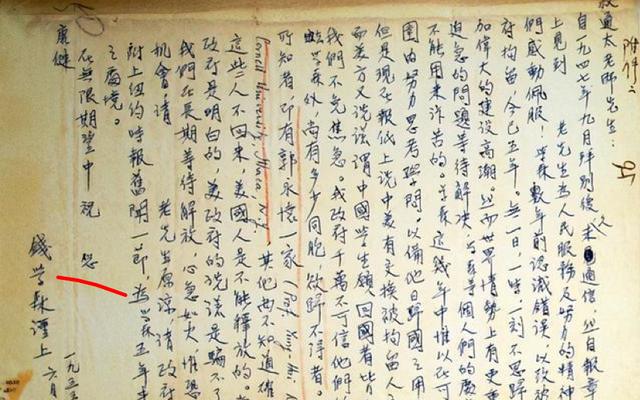 附件二
叔通太老師先生:
自一九四七年九月拜別後久未通信,然自報章
上見到 老先生為人民服務及努力的精神
們感動佩服!學森數年前認識錯誤,以致被
府拘留,今已五年。無一日,一時,一刻不思歸
加偉大的建設高潮。然而世界情勢上有更重
迫急的問題等待解決,學森等個人們的處
不能用來訴苦的。學森這幾年中惟以在可
圍內努力思考學問,以備他日歸國之用
但是現在報紙上說中美有交換被拘留人
而美方又說謊謂中國學生願回國者皆
我們不免焦急。我政府千萬不可信他們
學森外,尚有多少同胞,欲歸不得者。
所知者,即有郭永懷一家(Prof. Yung-huai K
Cornell University, Ithaca, N.Y.) 其他尚不知道確
這些人不回來,美國人是不能釋放的。
政府是明白的,美政府的說謊是騙不了
我們在長期等待解放,心急如火,惟恐
機會,請 老先生原諒,請政府
附上紐約時報舊聞一節,為學森五年來
之處境。
在無限期望中祝 您
康健
錢學森謹上
一九五五 六月